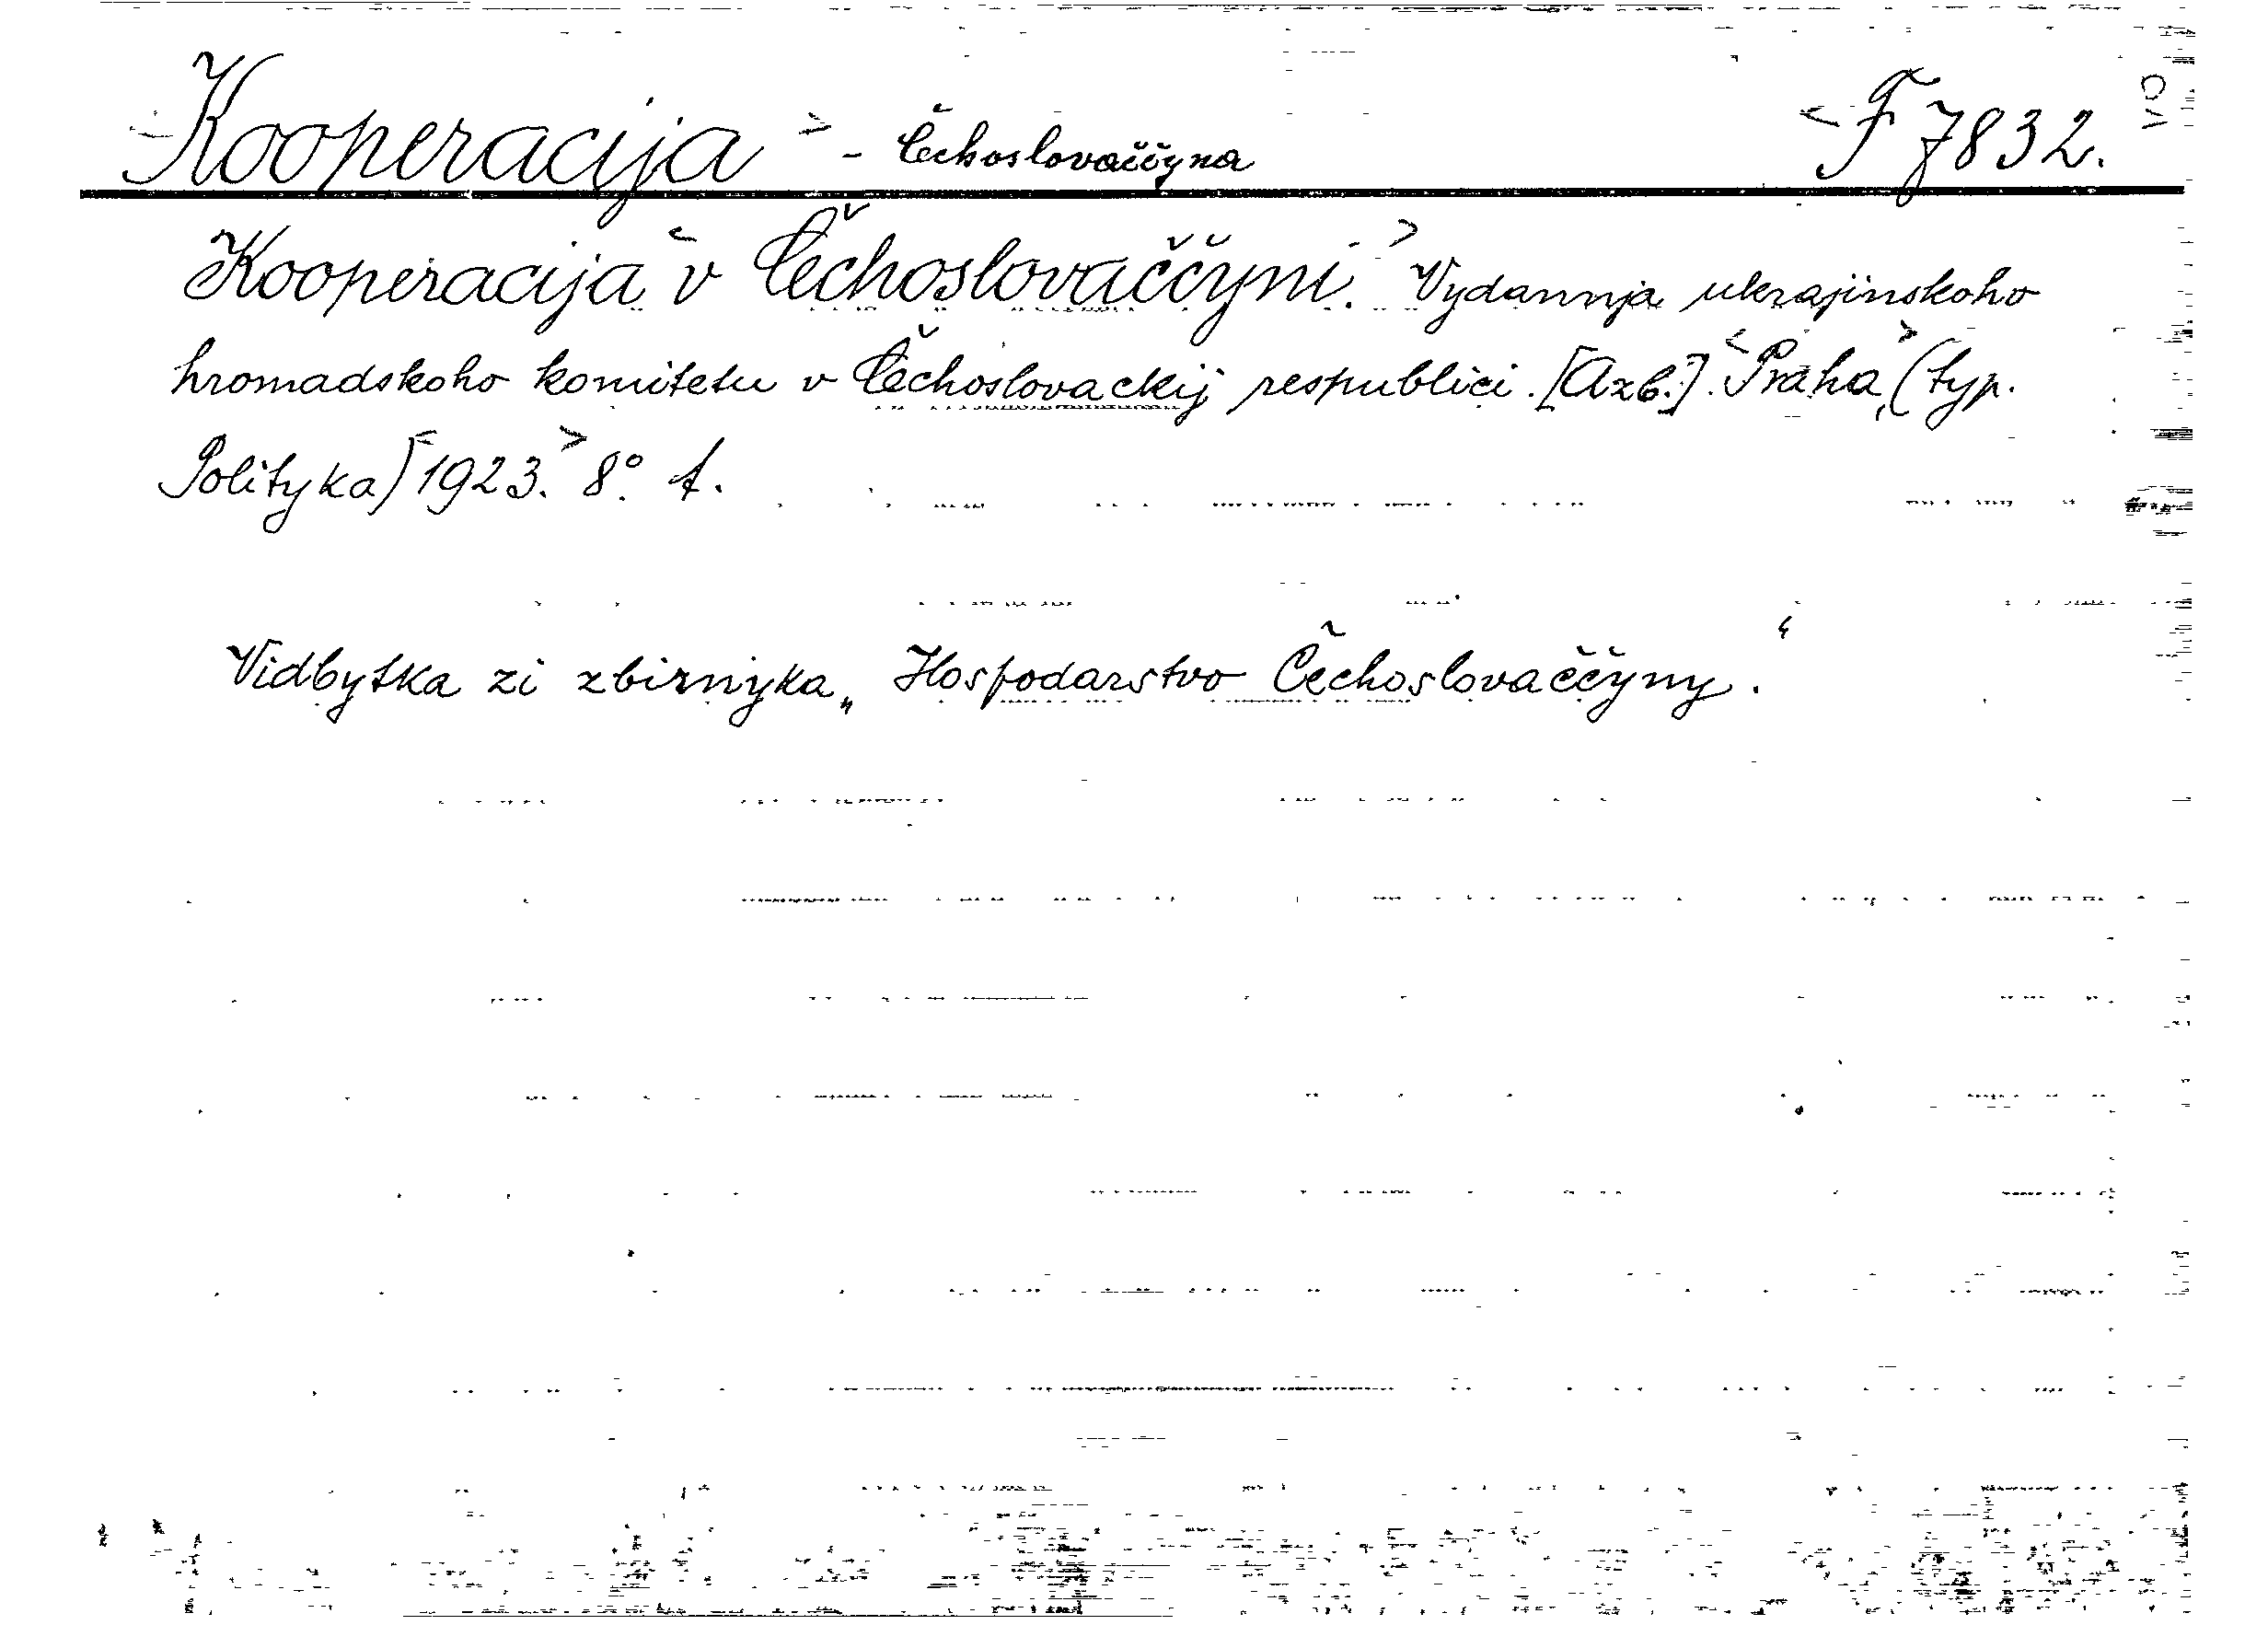 <Kooperacija> - Čechoslovaččyna <F 7832.
Kooperacija <v Čechoslovaččyni.> Vydannja ukrajinskoho
hromadskoho komitetu v Čechoslovackij respublici. [Azb.]. <Praha,> (typ.
Polityka) <1923.> 8°.
Vidbytka zi zbirnyka „Hospodarstvo Čechoslovaččyny."